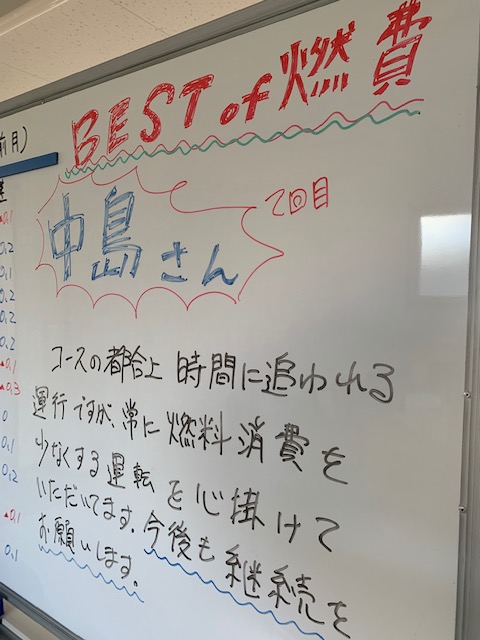 BEST of 燃費
中島さん
2回目
コースの都合上 時間に追われる
運行ですが、常に燃料消費を
少なくする運転を心掛けて
いただいてます。今後も継続を
お願いします。
前月)
0.2
0.1
0.2
0.2
0.2
▲0.1
▲0.3
0
0.1
0.2
▲0.1
0.1